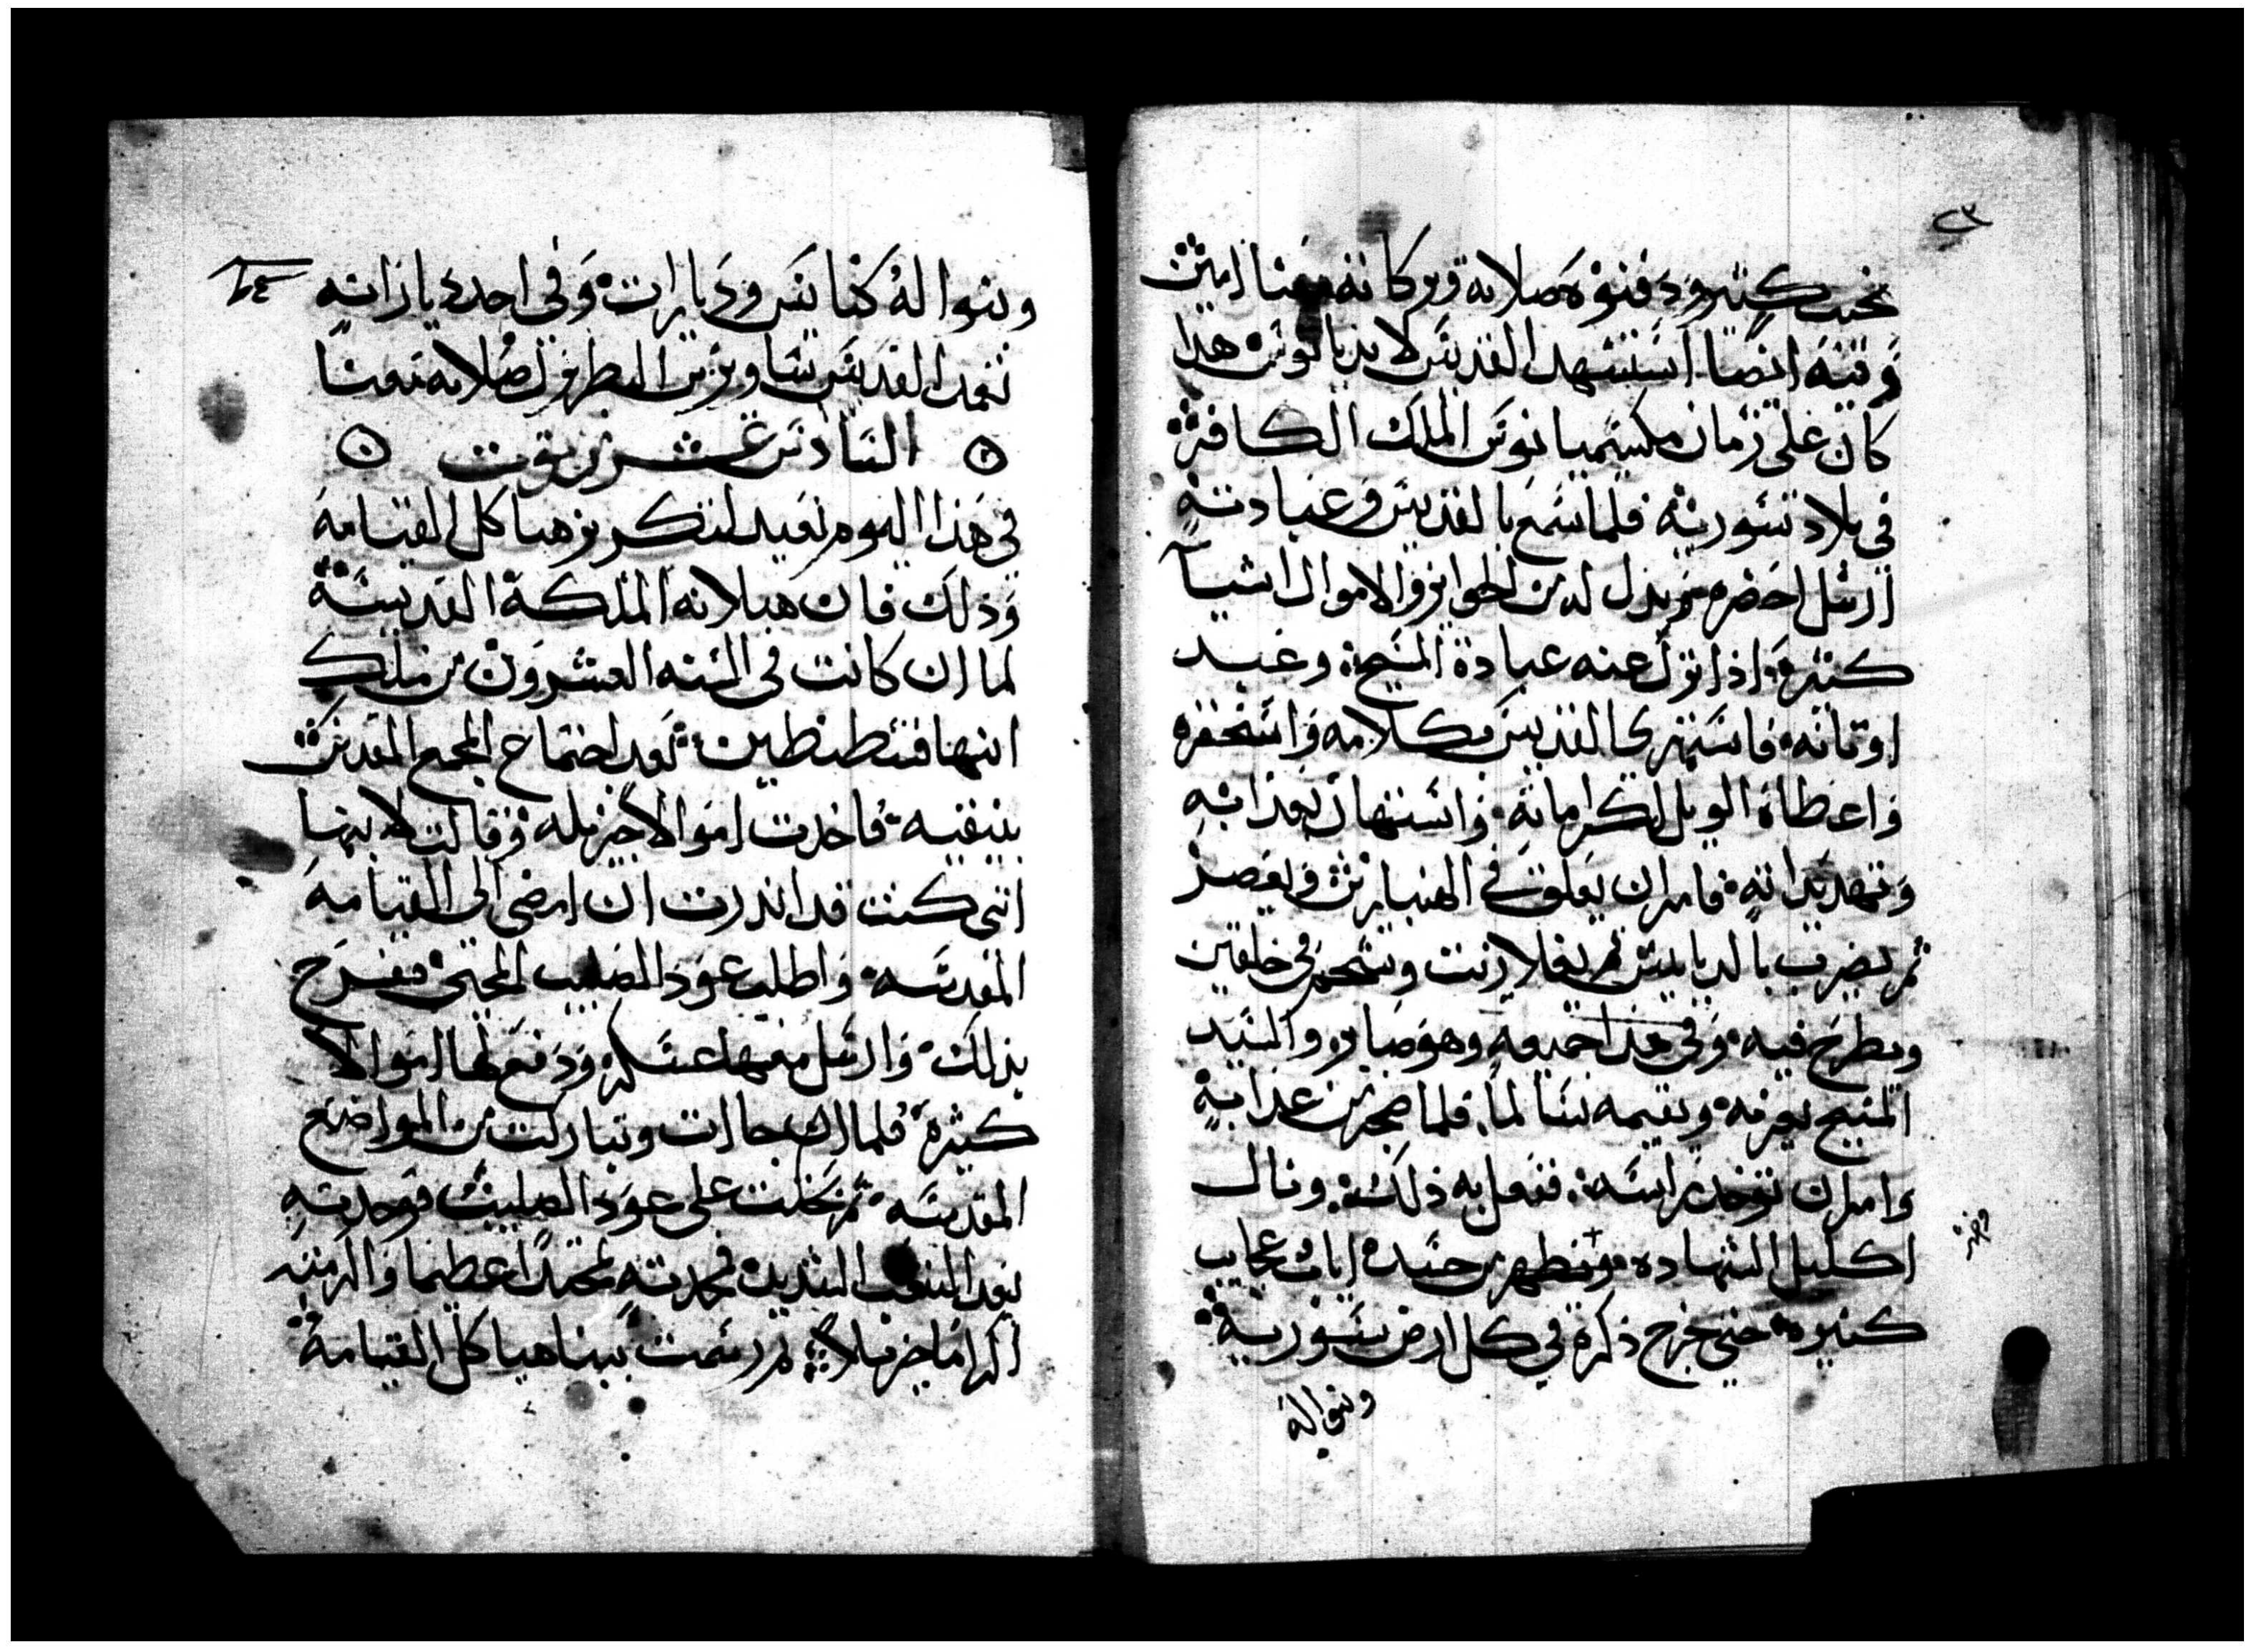 ٢٣
بمجد كثير ودفنوه صلاته وبركاته معنا امين
وفيه ايضا استشهد القديس لاونديانوس هذا
كان على زمان مكسيميانوس الملك الكافر
في بلاد سورية فلما سمع بالقديس وعبادته
ارسل احضره ثم بذل له من الجوايز والاموال اشيا
كثيرة اذا نزل عنه عبادة المسيح وعبد
اوثانه فاستهزى القديس بكلامه واستحقره
واعطاه الويل لكراماته واستهان بعذابه
وتهديداته فامر ان يعلق في الهنبازين ويعصر
ثم يضرب بالدبابيس ثم يغلا زيت وشحم في خلقين
ويطرح فيه وفي هذا جميعه وهو صابر والسيد
المسيح يعزيه ويقيمه سالما فلما ضجر من عذابه
وامر ان توخذ راسه ففعل به ذلك ونال
اكليل الشهاده وظهر من جسده ايات عجايب
كثيره حتى خرج ذكره في كل ارض سورية
وبنوا له
وبنوا له كنايس وديارات وفي احد دياراته
تنيح القديس ساويرس البطرك صلاته معنا
السادس عشر من توت
في هذا اليوم نعيد لتكريز هياكل القيامه
وذلك فان هيلانه الملكة القديسة
لما ان كانت في السنه العشرون من ملك
ابنها قسطنطين بعد اجتماع المجمع المقدس
بنيقيه فاخدت اموالا جزيله وقالت لابنها
انني كنت قد اندرت ان امضي الى القيامه
المقدسه واطلب عود الصليب المحيي ففرح
بذلك وارسل معها عسكر ودفع لها اموالا
كثيرة فلما ان جاات وتباركت من المواضع
المقدسه ثم بحثت على عود الصليب فوجدته
بعد التعب الشديد فمجدته تمجيدا عظيما واكرمته
اكراما جزيلا ثم رسمت ببنا هياكل القيامة